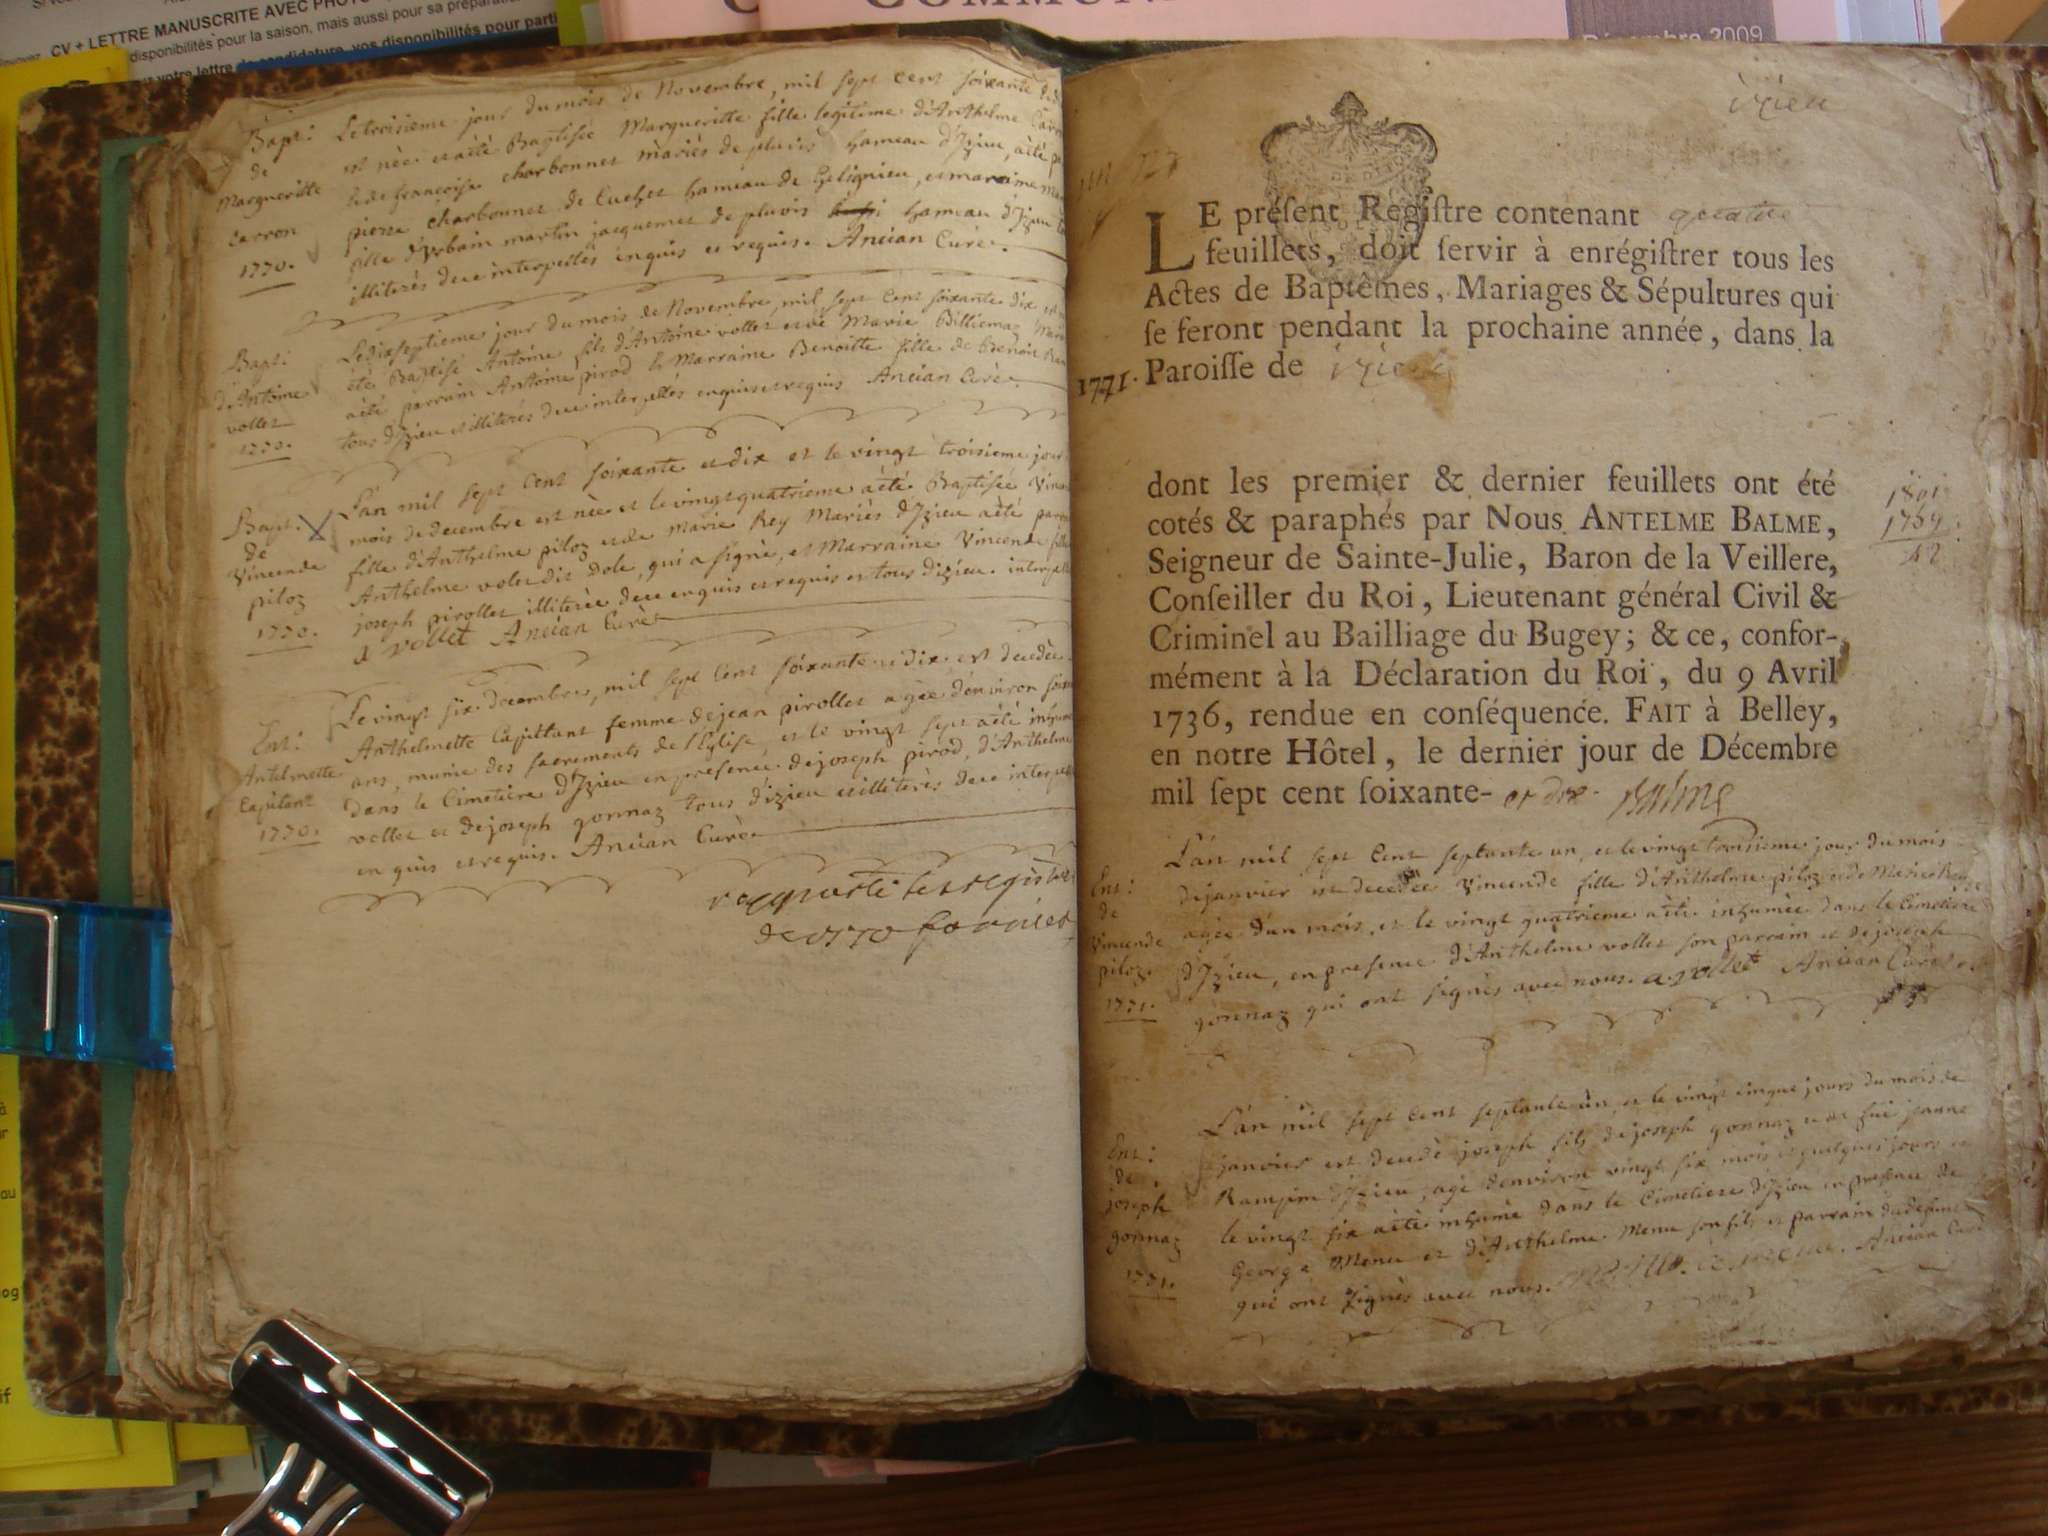 CV + LETTRE MANUSCRITE AVEC PHOTO
disponibilités pour la saison, mais aussi pour sa préparation
votre lettre de candidature, vos disponibilités pour parti
COMMUN
Décembre 2009
Bapt:
de
Margueritte
Carron
1770.
Le troisieme jour du mois de Novembre, mil sept cent soixante et di
est née et a été Baptisée Margueritte fille legitime d'Anthelme Carron
et de françoise charbonnet mariés de pluvis hameau d'Izieu, a été pa
pierre charbonnet de Cuchet hameau de Gelignieu, et marraine
fille d'Urbain martin jacquemet de pluvis hameau d'Izieu
illiterés de ce interpellés enquis et requis. Ancian Curé.
Bapt:
d'Antoine
vollet
1770.
Le dixseptieme jour du mois de Novembre, mil sept Cent soixante dix est
été Baptisé Antoine fils d'Antoine vollet et de Marie Billiemaz
a été parrain Antoine pirod & Marraine Benoitte fille de Benoit
tous d'Izieu et illiterés de ce interpellés enquis et requis Ancian Curé.
Bapt:
de
Vincende
piloz
1770.
L'an mil sept Cent soixante et dix et le vingt troisieme jour
mois de decembre est née et le vingt quatrieme a été Baptisée Vincen
fille d'Anthelme piloz et de Marie Rey Mariés d'Izieu a été parra
Anthelme volet dit dole, qui a signé, et Marraine Vincende fille
joseph pirollet illiterée de ce enquis et requis et tous d'izieu. interpell
a vollet Ancian Curé
Ent:
Antelmette
Capitant
1770.
Le vingt six decembre, mil sept Cent soixante et dix est decedée
Anthelmette Capittant femme de jean pirollet agée d'environ soixan
ans, munie des sacrements de l'Eglise, et le vingt sept a été inhum
dans le Cimetiere d'Izieu en presence de joseph pirod, d'Anthelme
vollet et de joseph gonnaz tous d'izieu et illiterés de ce interpell
enquis et requis. Ancian Curé.
raporté les registres
de 1770
izieu
LE préſent Regiſtre contenant quatre
feuillets, doit ſervir à enrégiſtrer tous les
Actes de Baptêmes, Mariages & Sépultures qui
ſe feront pendant la prochaine année, dans la
1771. Paroiſſe de izieu
dont les premier & dernier feuillets ont été
cotés & paraphés par Nous ANTELME BALME,
Seigneur de Sainte-Julie, Baron de la Veillere,
Conſeiller du Roi, Lieutenant général Civil &
Criminel au Bailliage du Bugey; & ce, confor-
mément à la Déclaration du Roi, du 9 Avril
1736, rendue en conſéquence. FAIT à Belley,
en notre Hôtel, le dernier jour de Décembre
mil ſept cent ſoixante- et dix. Balme
1801
1759
42
Ent:
de
Vincende
piloz.
1771.
L'an mil sept Cent septante un, et le vingt troisieme jour du mois
de janvier est decedée Vincende fille d'Anthelme piloz et de Marie Rey
agée d'un mois, et le vingt quatrieme a été inhumée dans le Cimetiere
d'Izieu, en presence d'Anthelme vollet son parrain et de joseph
gonnaz qui ont signés avec nous. a. vollet Ancian Curé
Ent:
de
joseph
gonnaz
1771.
L'an mil sept Cent septante un, et le vingt cinque jours du mois de
janvier est decedé joseph fils de joseph gonnaz et de fue jeanne
d'Izieu, agé d'environ vingt six mois et quelques jours et
le vingt six a été inhumé dans le Cimetiere d'Izieu en presence de
George Menu et d'Anthelme Menu son fils et parrain du defunt
qui ont signés avec nous. Ancian Curé